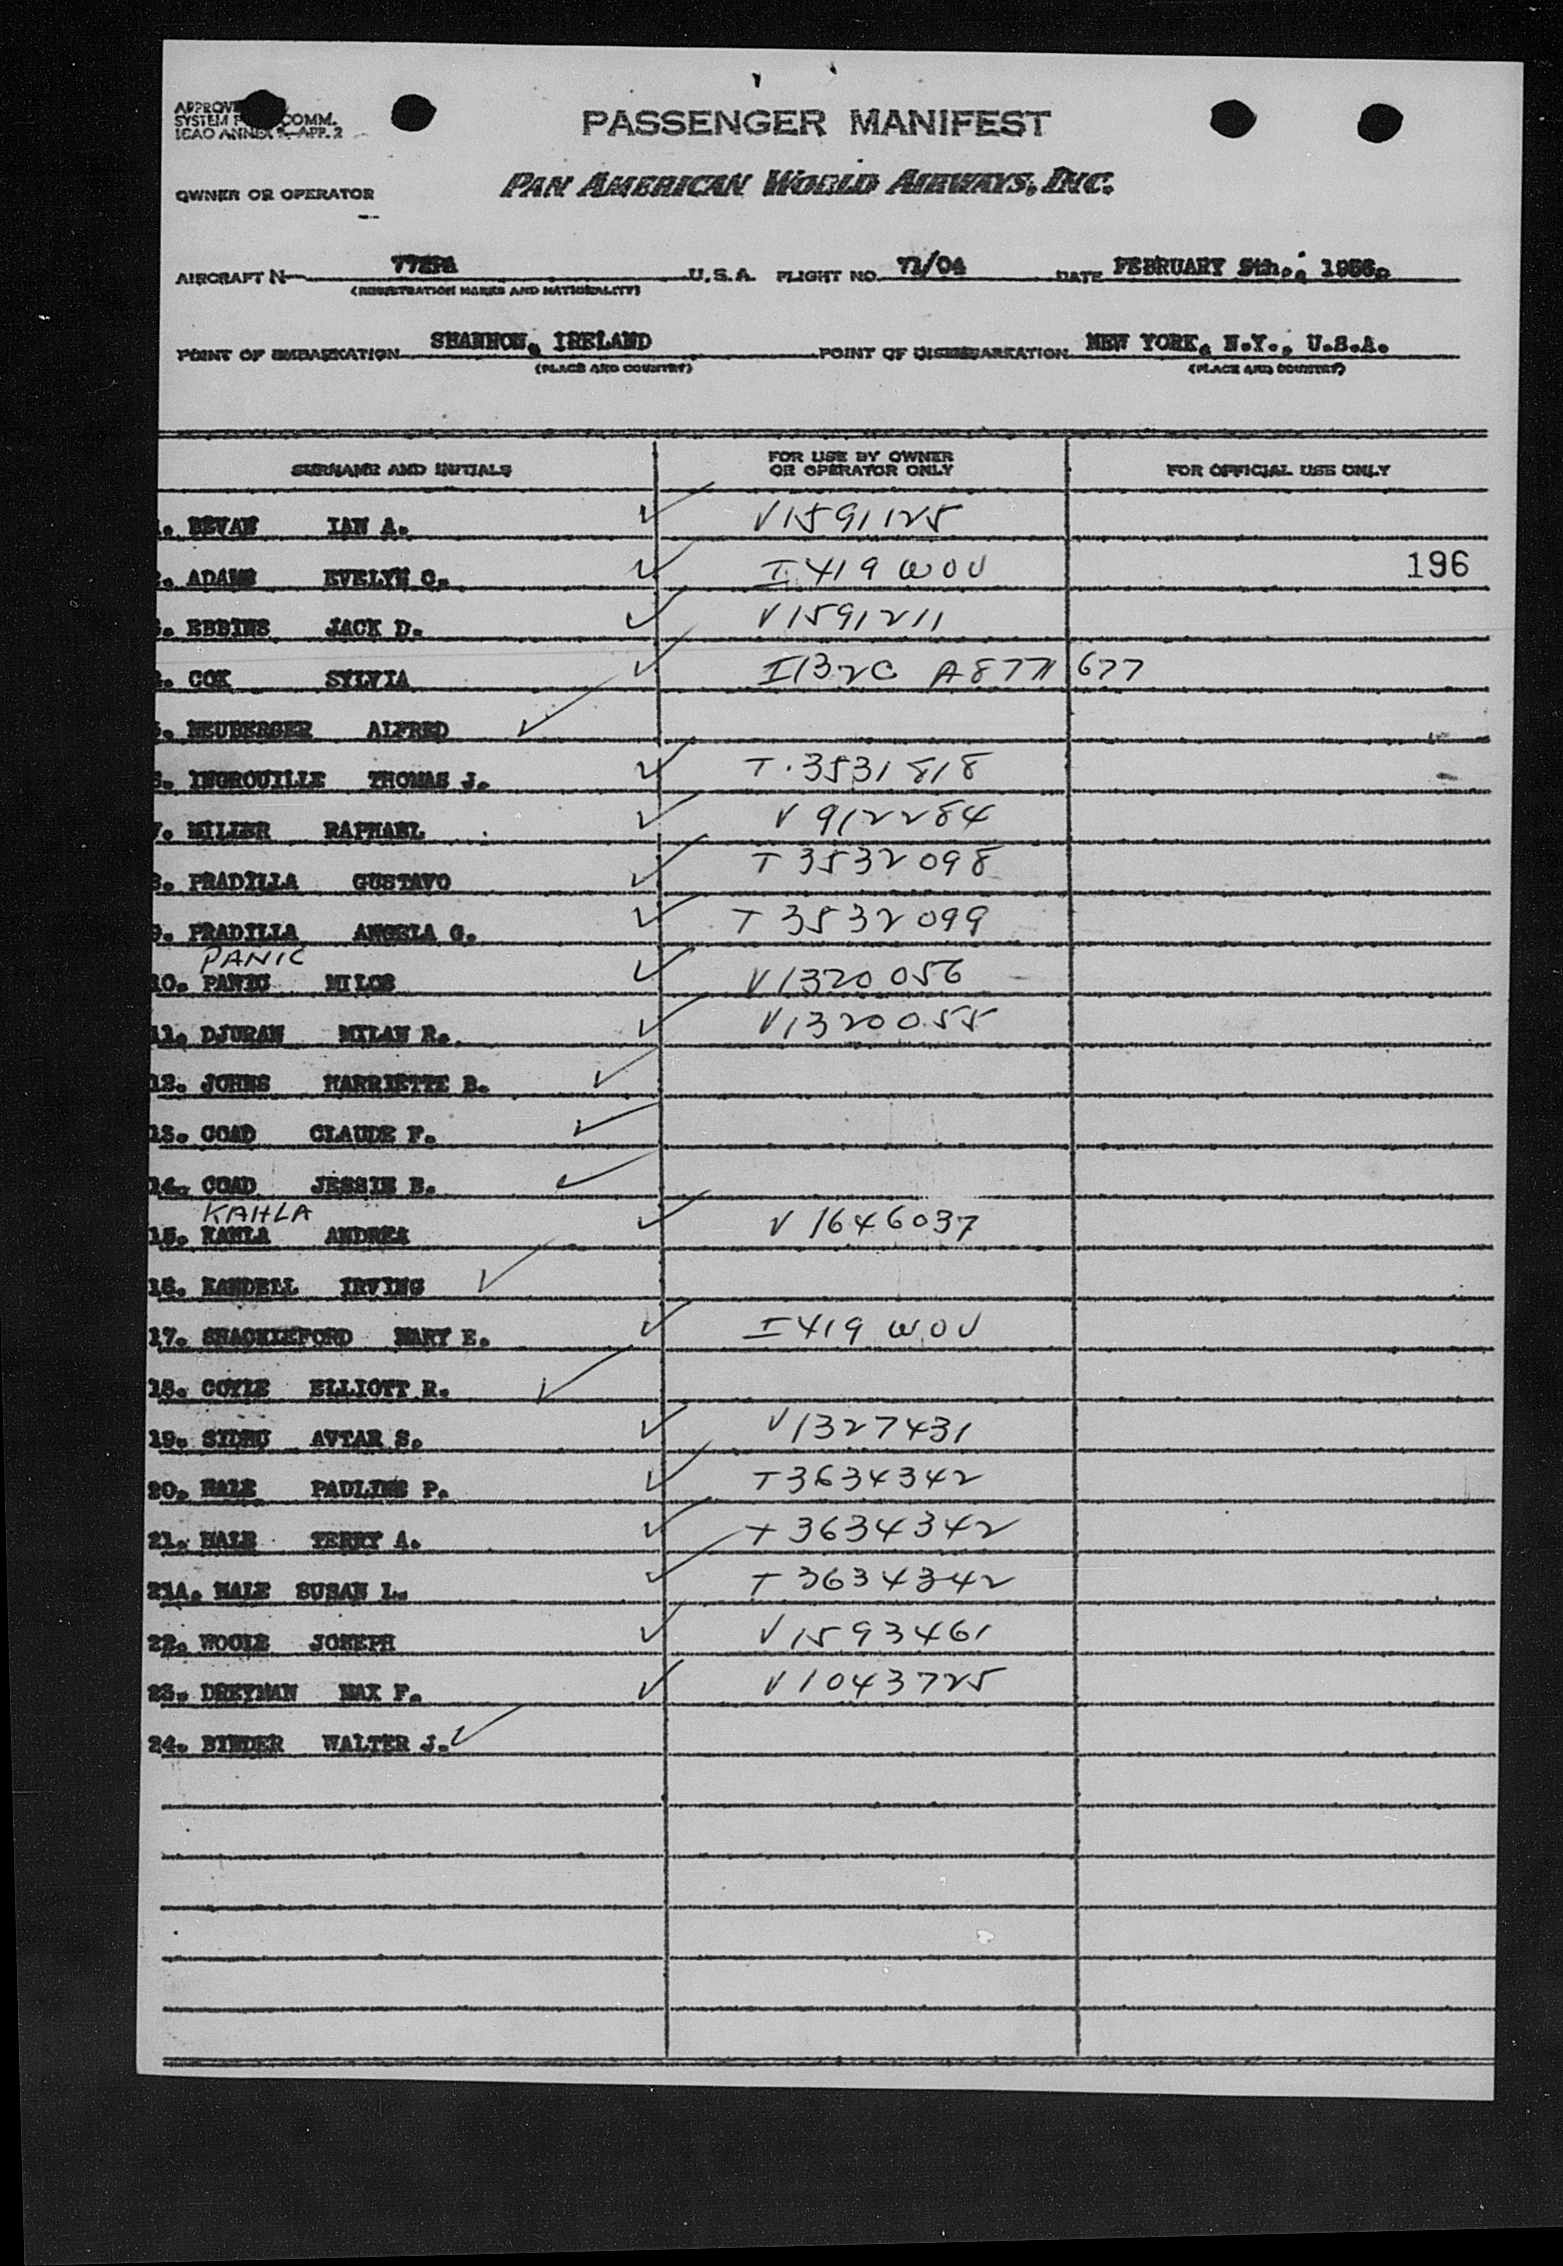 PASSENGER MANIFEST
SYSTEM COMM.
ICAO ANNEX APP. 2
OWNER OR OPERATOR PAN AMERICAN WORLD AIRWAYS, INC.
AIRCRAFT N U.S.A. FLIGHT NO. 71/04 DATE FEBRUARY 5th., 1956.
(REGISTRATION MARKS AND NATIONALITY)
POINT OF EMBARKATION SHANNON, IRELAND POINT OF DISEMBARKATION NEW YORK, N.Y., U.S.A.
(PLACE AND COUNTRY) (PLACE AND COUNTRY)
SURNAME AND INITIALS FOR USE BY OWNER OR OPERATOR ONLY FOR OFFICIAL USE ONLY
. BEVAN IAN A. V1591125
. ADAMS EVELYN C. I 419 WOV 196
. EBBINS JACK D. V1591211
. COX SYLVIA I132C A8771677
. NEUBERGER ALFRED
. INGROUILLE THOMAS J. T.3531818
7. MILLER RAPHAEL V 912284
8. PRADILLA GUSTAVO T 3532098
9. PRADILLA ANGELA G. T 3532099
PANIC
10. PANIC MILOS V1320056
11. DJURAN MILAN R. V1320055
12. JOHNS HARRIETTE B.
13. COAD CLAUDE F.
14. COAD JESSIE B.
KAHLA
15. KAHLA ANDREA V 1646037
16. KANDELL IRVING
17. SHACKLEFORD MARY E. I419 WOV
18. COYLE ELLIOTT R.
19. SIDHU AVTAR S. V1327431
20. HALE PAULINE P. T3634342
21. HALE TERRY A. T 3634342
21A. HALE SUSAN L. T 3634342
22. JOSEPH V1593461
23. DREYMAN MAX F. V1043725
24. BINDER WALTER J.